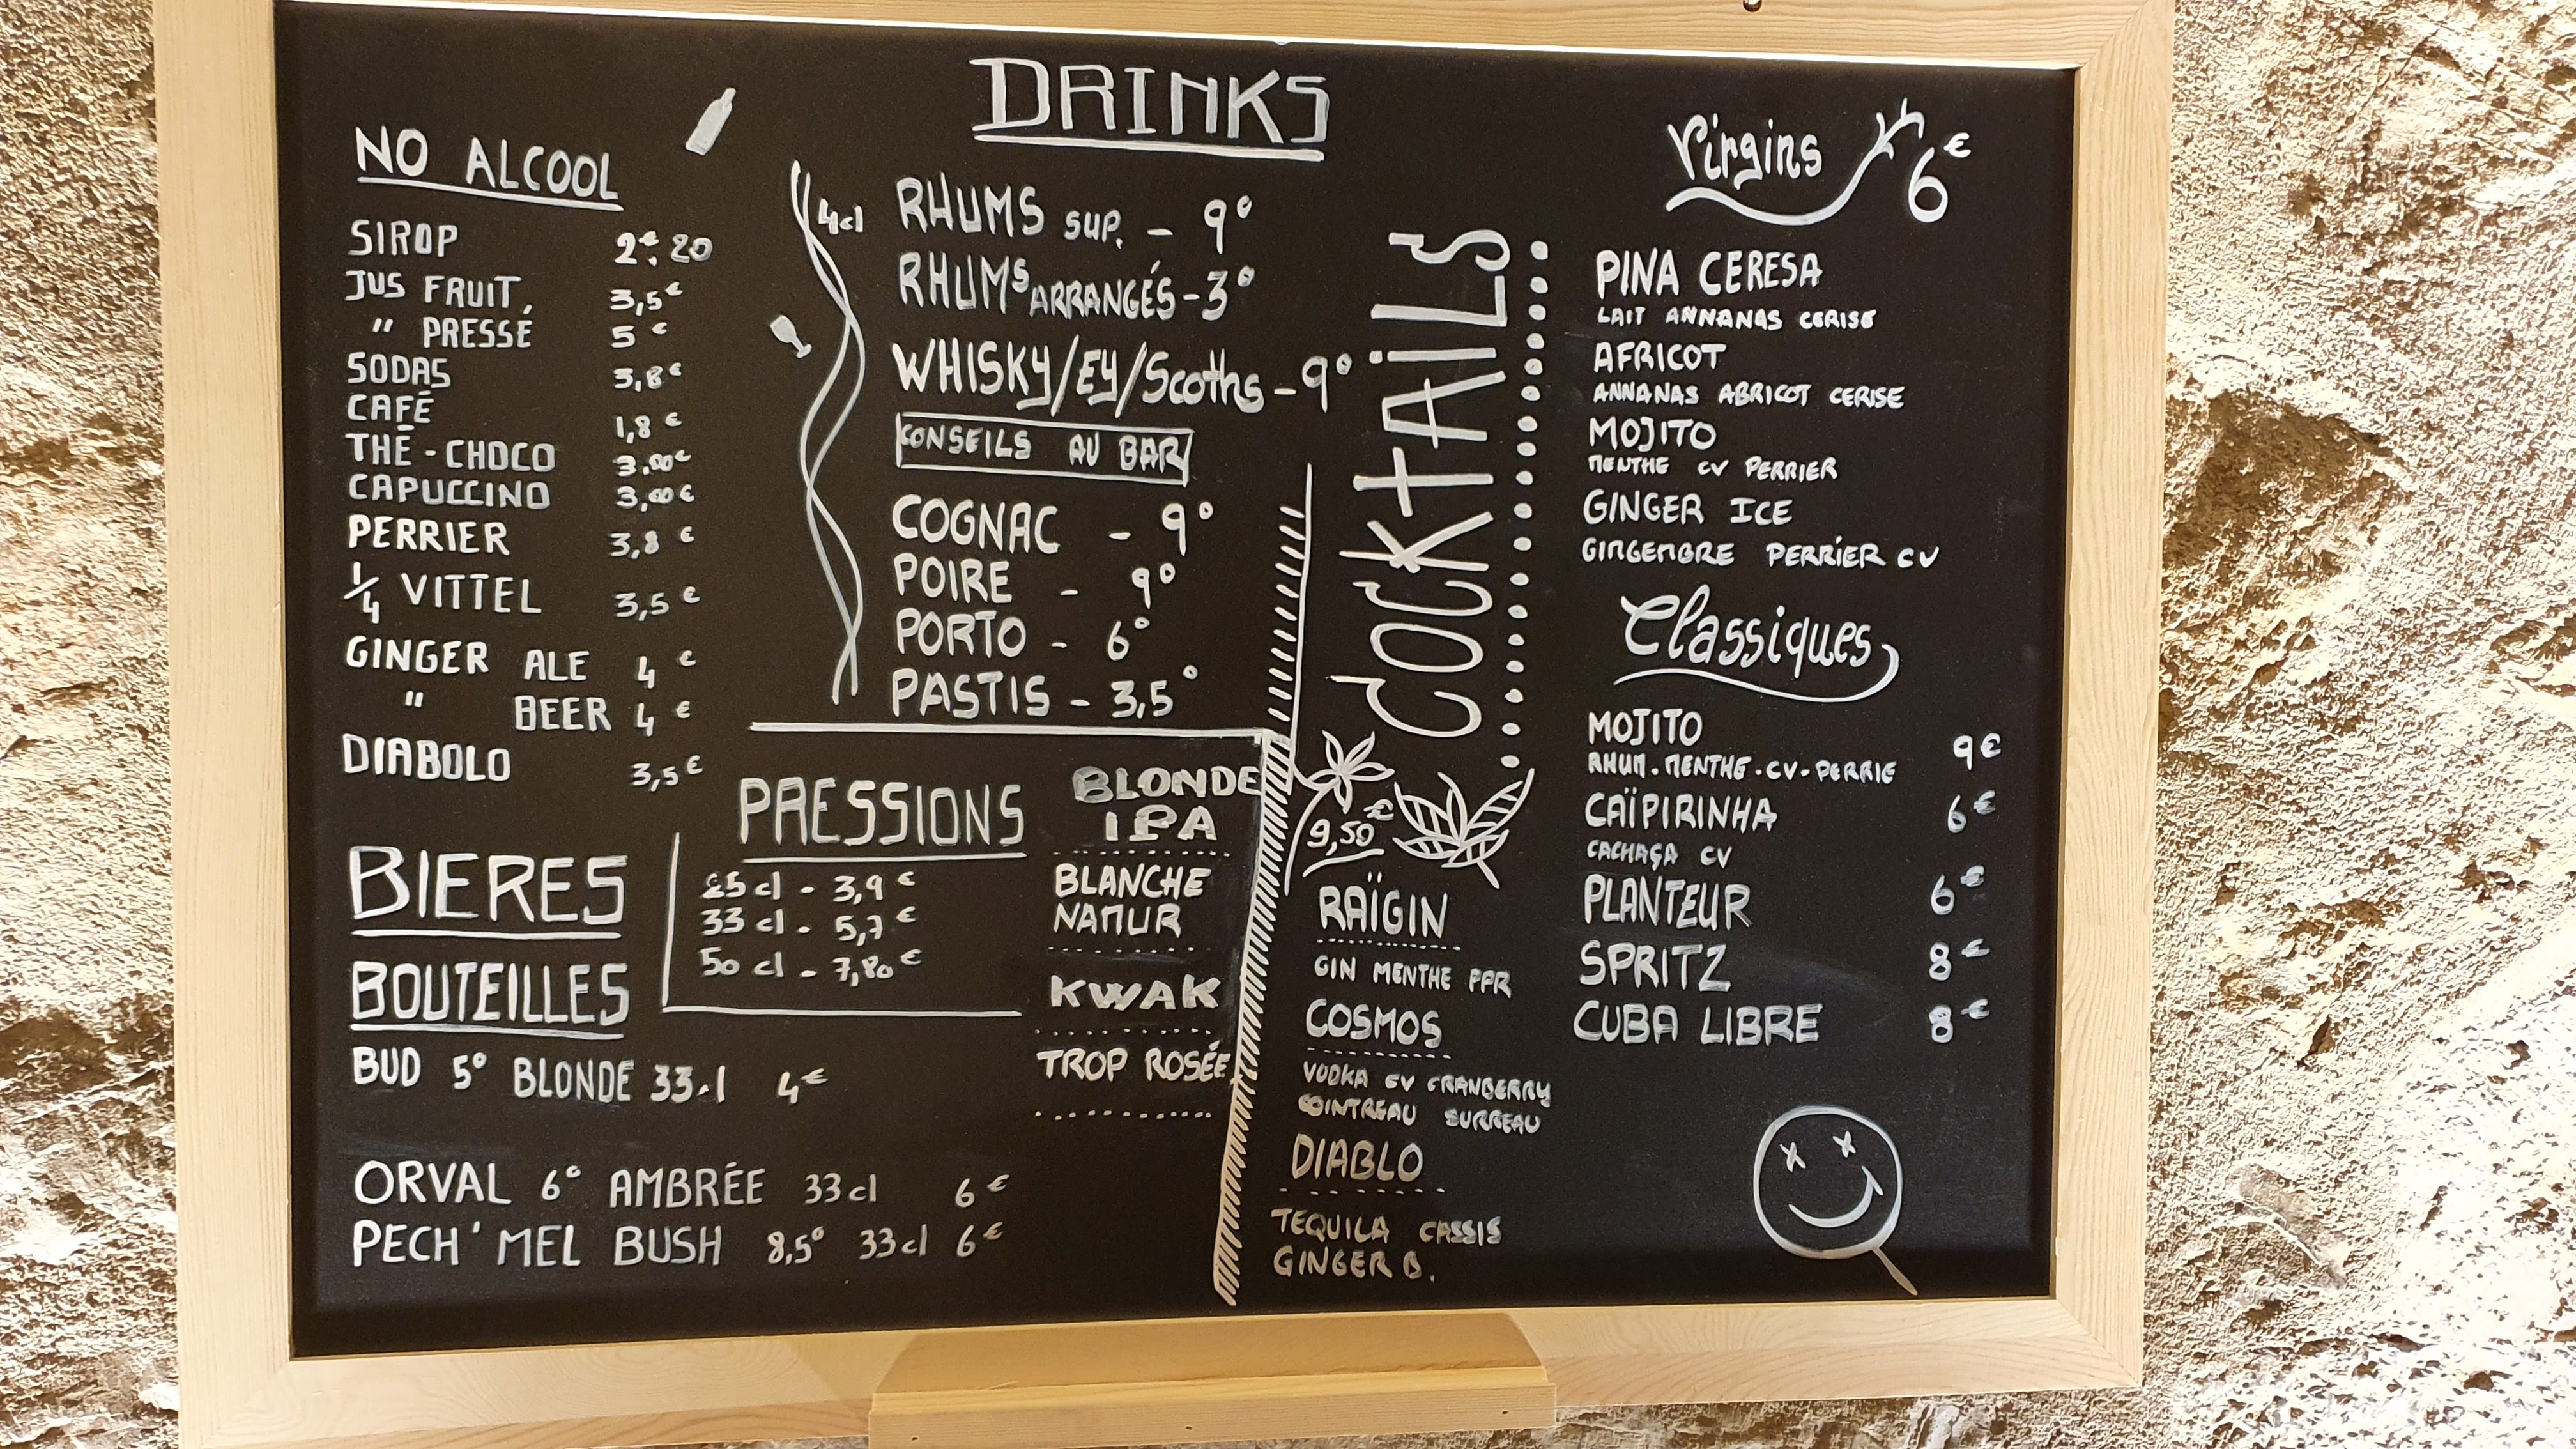 DRINKS
NO ALCOOL
SIROP 2€,20
JUS FRUIT, 3,5€
" PRESSÉ 5€
SODAS 3,8€
CAFÉ 1,8€
THÉ - CHOCO 3.00€
CAPUCCINO 3,00€
PERRIER 3,8€
1/4 VITTEL 3,5€
GINGER ALE 4€
" BEER 4€
DIABOLO 3,5€
4cl
RHUMS SUP. - 9°
RHUMS ARRANGÉS - 3°
WHISKY/EY/Scoths - 9°
CONSEILS AU BAR
COGNAC - 9°
POIRE - 9°
PORTO - 6°
PASTIS - 3,5°
BIERES
PRESSIONS
25cl - 3,9€
33cl - 5,7€
50cl - 7,80€
BLONDE
IPA
BLANCHE
NAMUR
KWAK
TROP ROSÉE
BOUTEILLES
BUD 5° BLONDE 33cl 4€
ORVAL 6° AMBRÉE 33cl 6€
PECH'MEL BUSH 8,5° 33cl 6€
COCKTAILS
9,50€
RAÏGIN
GIN MENTHE PPR
COSMOS
VODKA CV CRANBERRY
COINTREAU SURREAU
DIABLO
TEQUILA CASSIS
GINGER B.
Virgins 6€
PINA CERESA
LAIT ANNANAS CERISE
AFRICOT
ANNANAS ABRICOT CERISE
MOJITO
MENTHE CV PERRIER
GINGER ICE
GINGEMBRE PERRIER CV
Classiques
MOJITO 9€
RHUM.MENTHE.CV-PERRIE
CAÏPIRINHA 6€
CACHAÇA CV
PLANTEUR 6€
SPRITZ 8€
CUBA LIBRE 8€